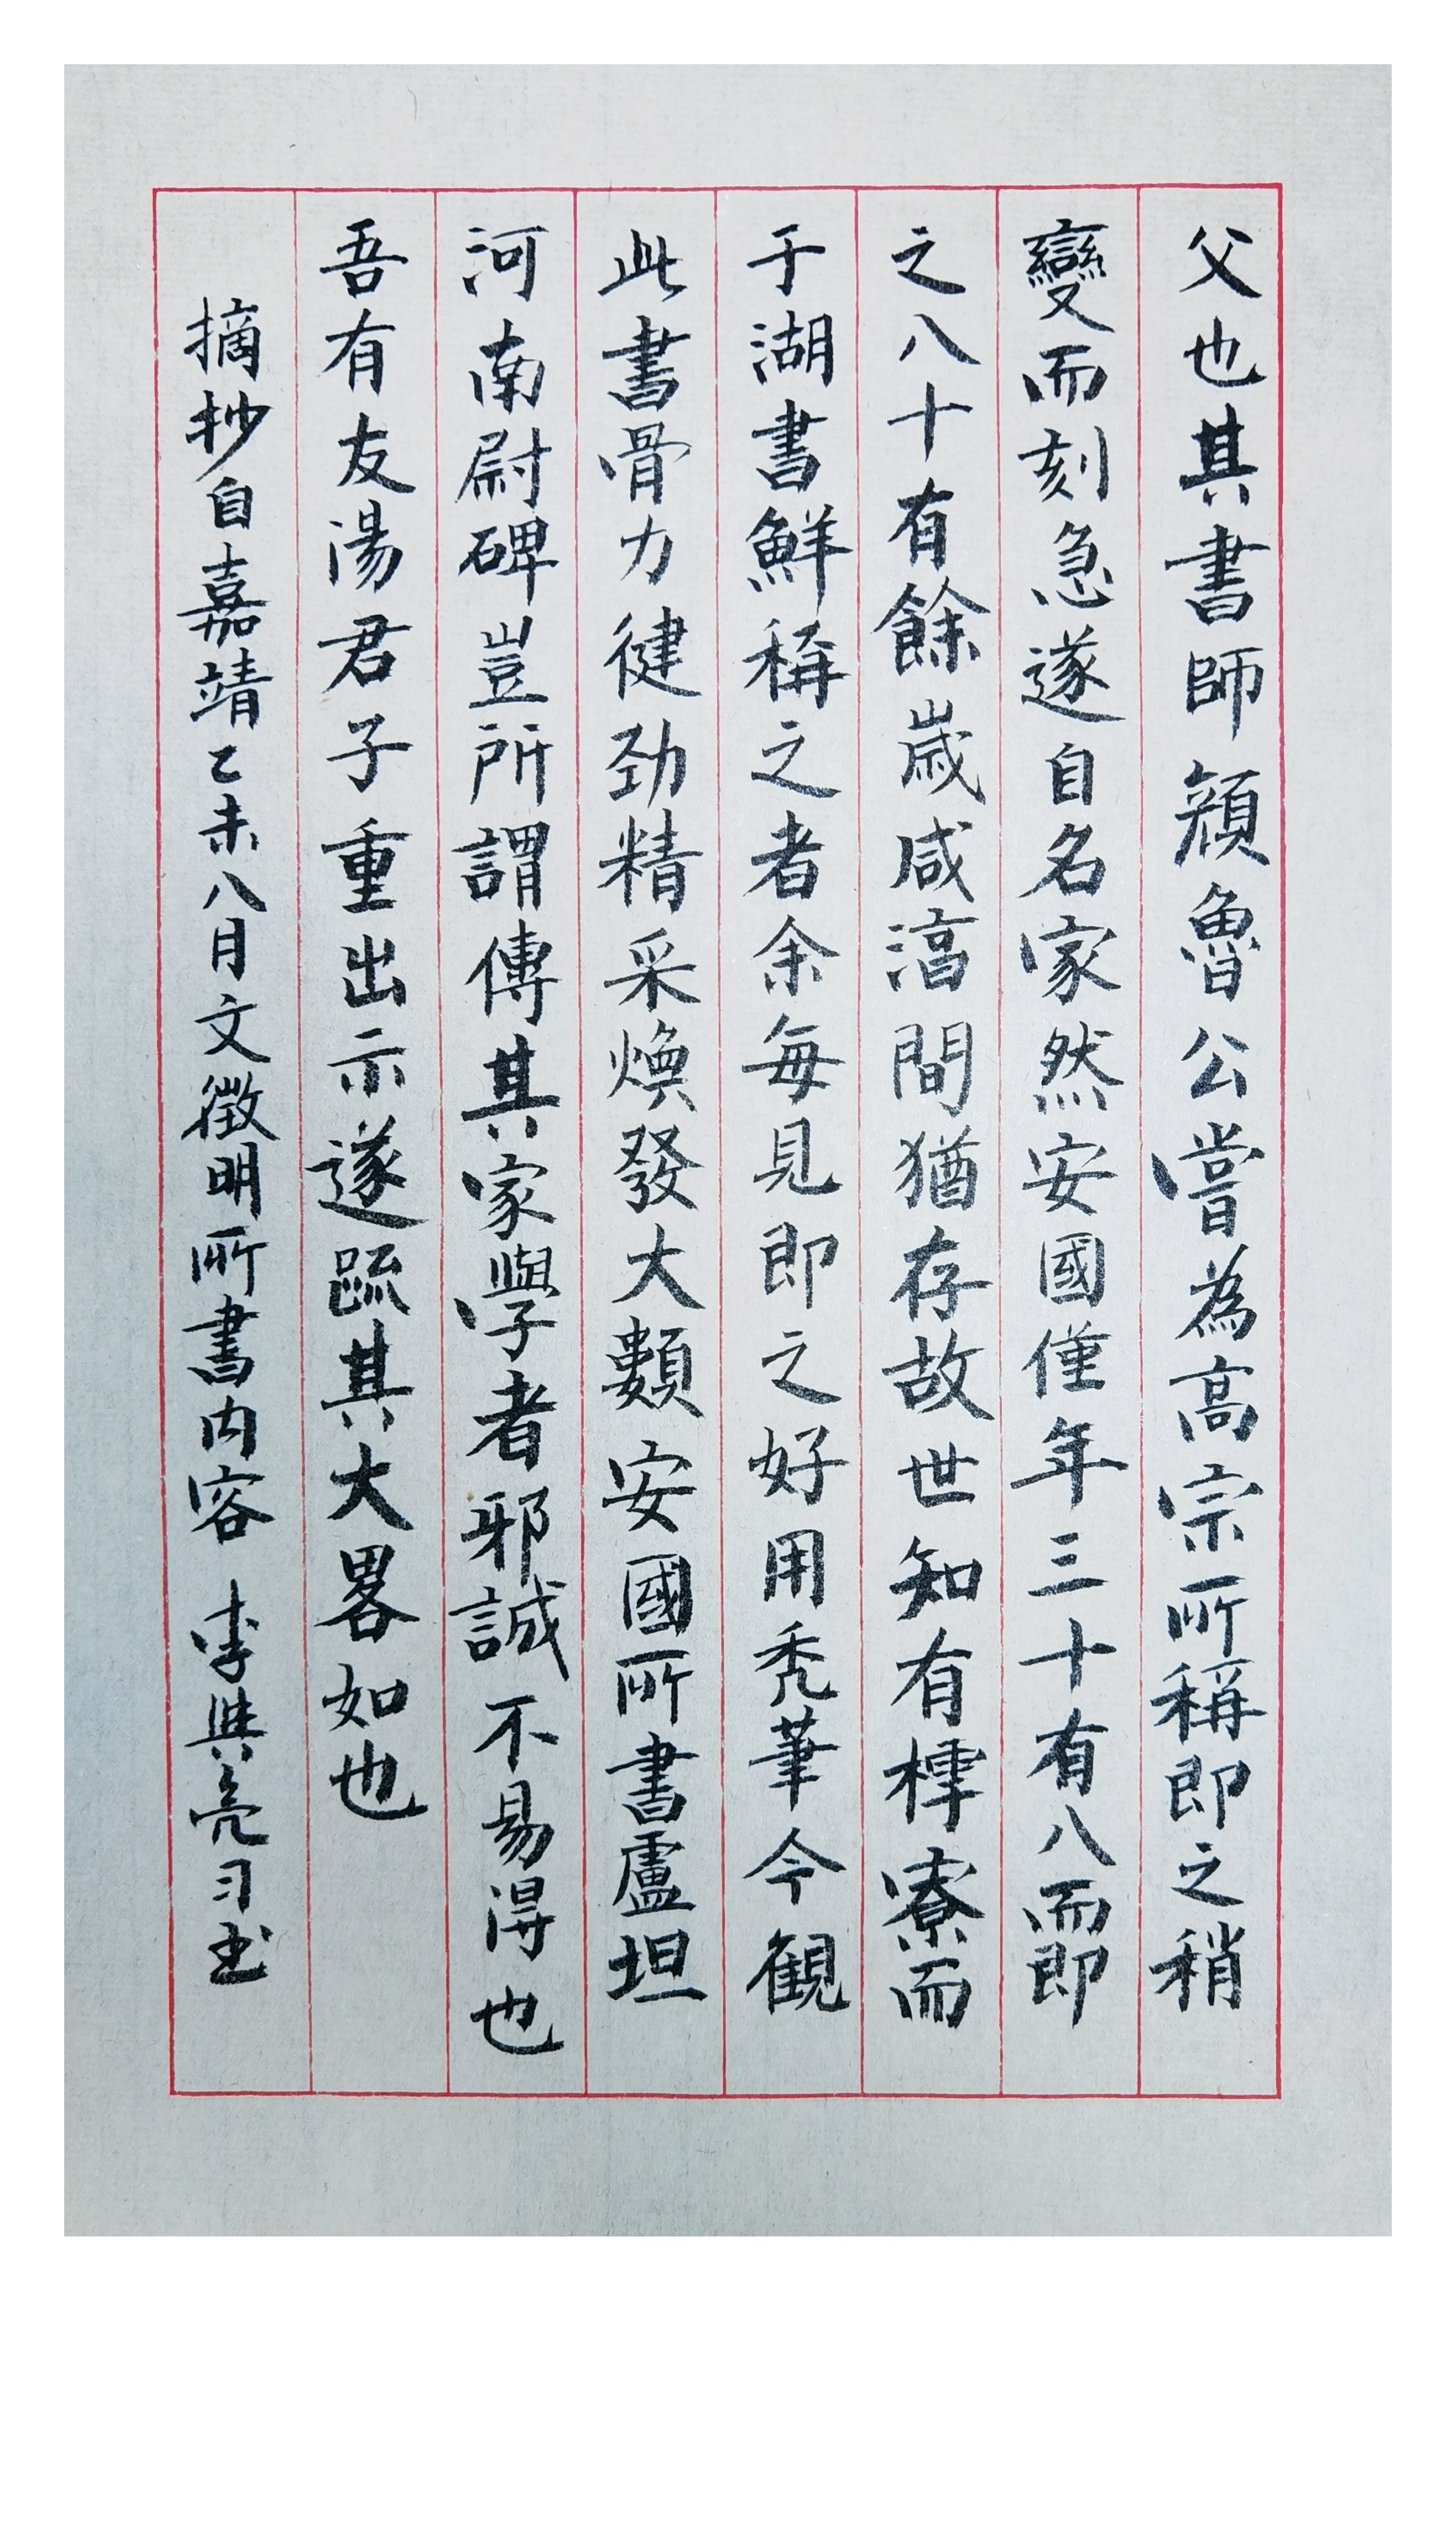 父也其書師顏魯公嘗為高宗所稱即之稍
變而刻急遂自名家然安國僅年三十有八而即
之八十有餘歲咸淳間猶存故世知有樗寮而
于湖書鮮稱之者余每見即之好用禿筆今觀
此書骨力健勁精采煥發大類安國所書盧坦
河南尉碑豈所謂傳其家學者邪誠不易得也
吾有友湯君子重出示遂疏其大畧如也
摘抄自嘉靖乙未八月文徵明所書内容 李興亮习书